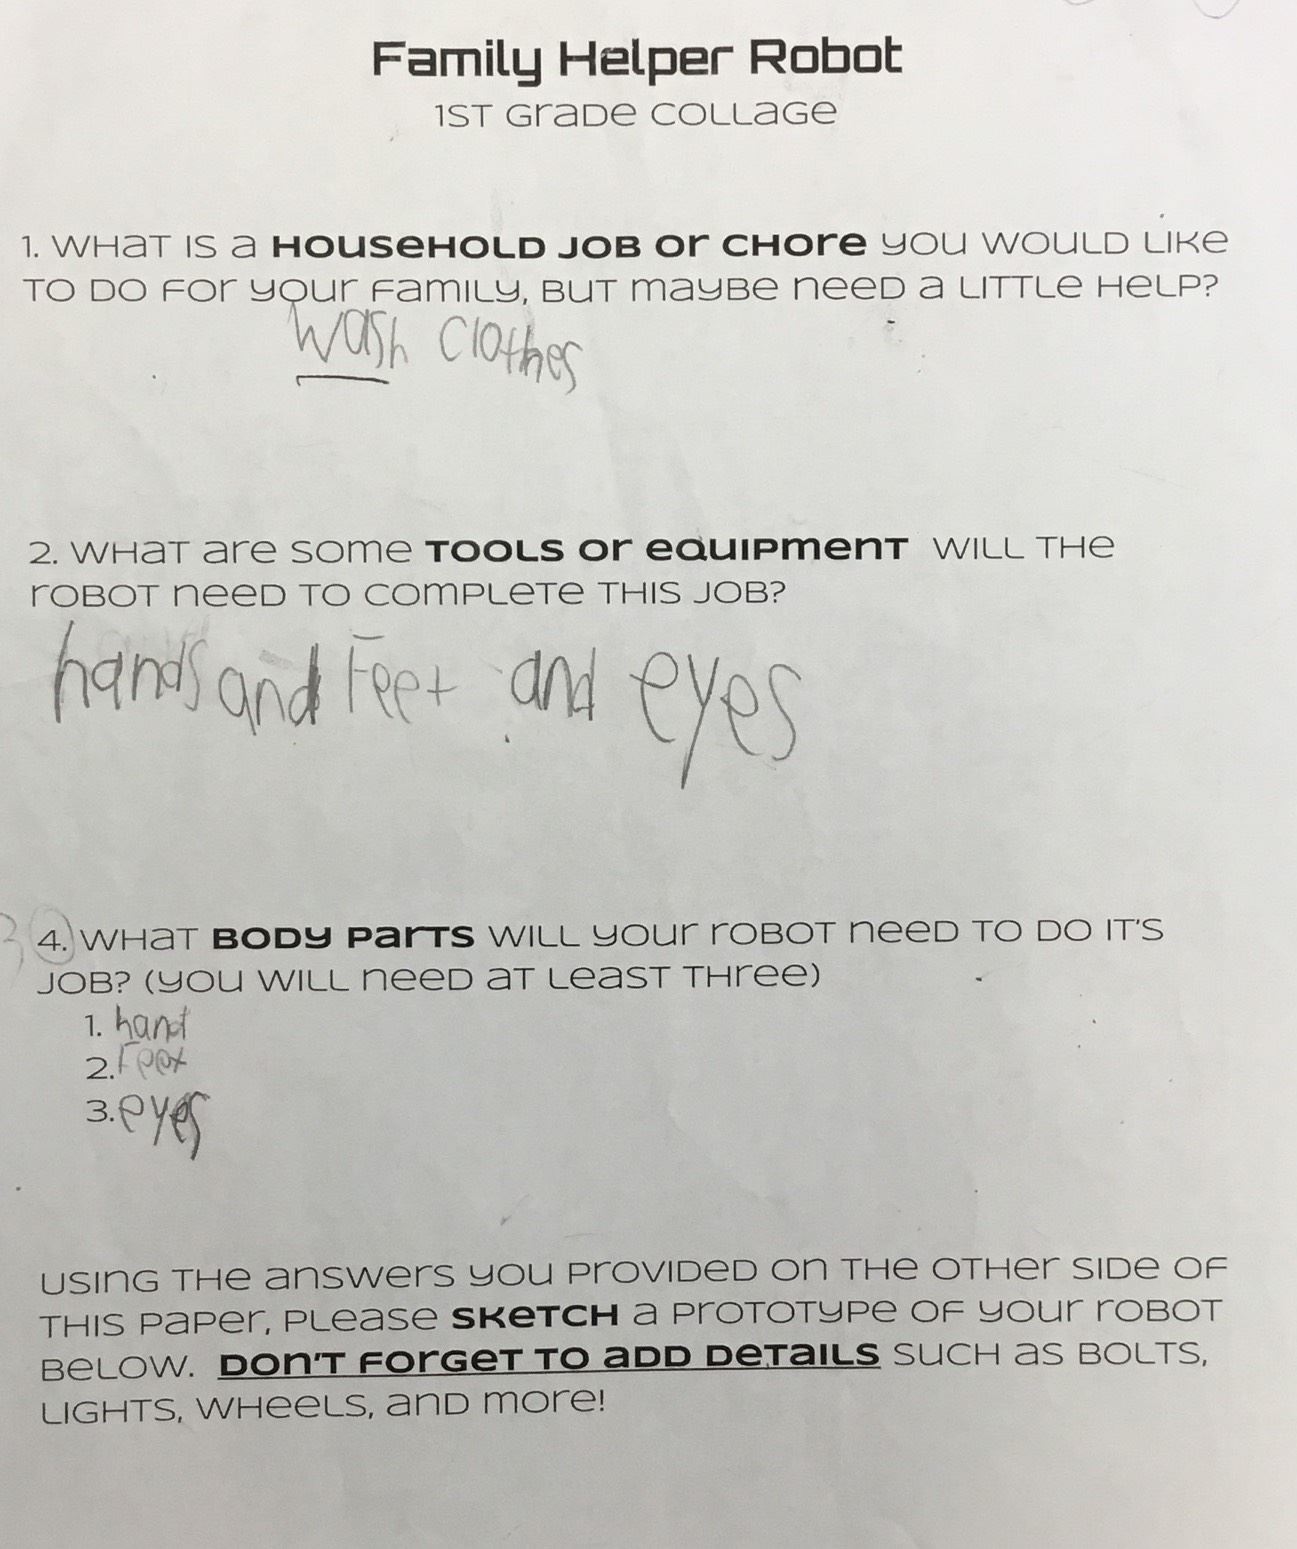 Family Helper Robot
1ST GRADE COLLAGE
1. WHAT IS A HOUSEHOLD JOB OR CHORE YOU WOULD LIKE
TO DO FOR YOUR FAMILY, BUT MAYBE NEED A LITTLE HELP?
Wash Clothes
2. WHAT ARE SOME TOOLS OR EQUIPMENT WILL THE
ROBOT NEED TO COMPLETE THIS JOB?
hands and Feet and eyes
3 4. WHAT BODY PARTS WILL YOUR ROBOT NEED TO DO IT'S
JOB? (YOU WILL NEED AT LEAST THREE)
1. hand
2. Feet
3. eyes
USING THE ANSWERS YOU PROVIDED ON THE OTHER SIDE OF
THIS PAPER, PLEASE SKETCH A PROTOTYPE OF YOUR ROBOT
BELOW. DON'T FORGET TO ADD DETAILS SUCH AS BOLTS,
LIGHTS, WHEELS, AND MORE!